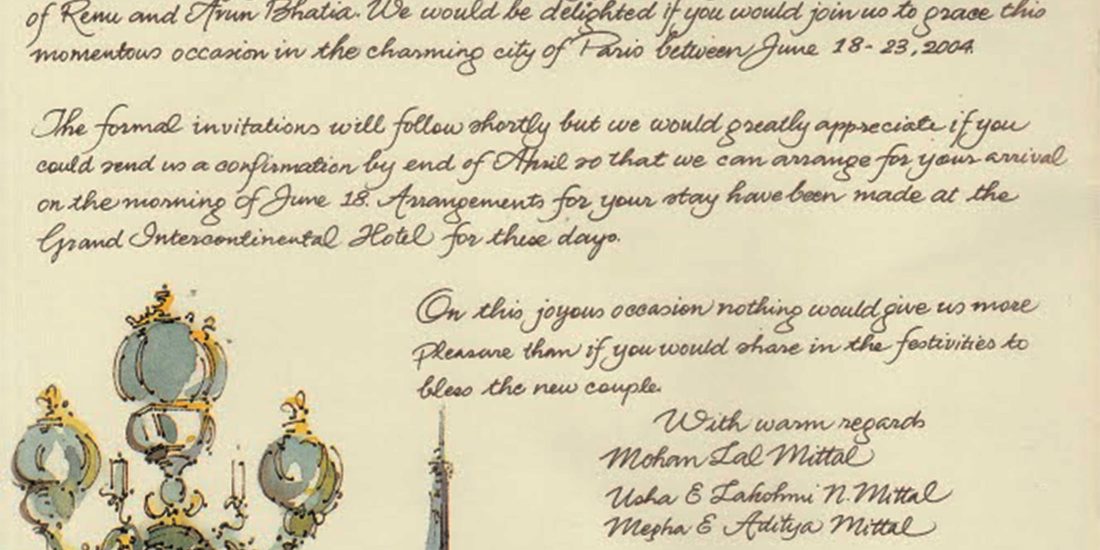 of Renu and Arun Bhatia. We would be delighted if you would join us to grace this
momentous occasion in the charming city of Paris between June 18-23, 2004.
The formal invitations will follow shortly but we would greatly appreciate if you
could send us a confirmation by end of April so that we can arrange for your arrival
on the morning of June 18. Arrangements for your stay have been made at the
Grand Intercontinental Hotel for these days.
On this joyous occasion nothing would give us more
pleasure than if you would share in the festivities to
bless the new couple.
With warm regards
Mohan Lal Mittal
Usha & Lakshmi N. Mittal
Megha & Aditya Mittal